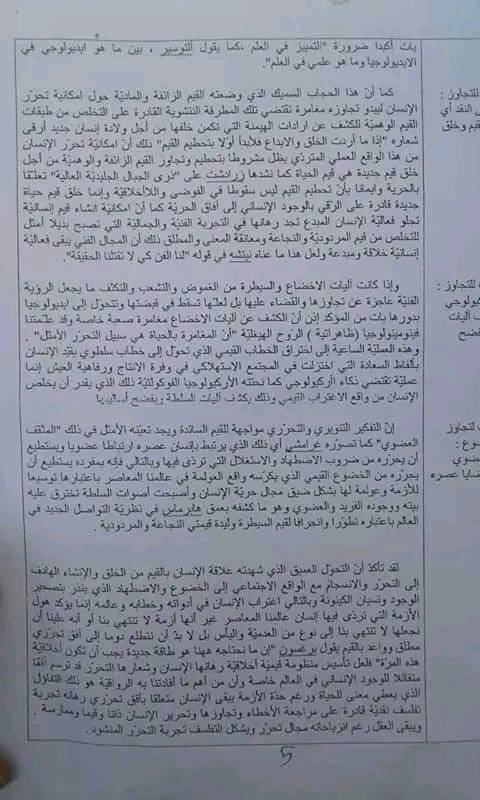 بات أكيدا ضرورة "التمييز في العلم ،كما يقول ألتوسير ، بين ما هو ايديولوجي في
الايديولوجيا وما هو علمي في العلم".
كما أنّ هذا الحجاب السميك الذي وضعته القيم الزائفة والماديّة حول امكانية تحرّر
الإنسان ليبدو تجاوزه مغامرة تقتضي تلك المطرقة النتشوية القادرة على التخلص من طبقات
القيم الوهميّة للكشف عن ارادات الهيمنة التي تكمن خلفها من أجل ولادة إنسان جديد أرقى
شعاره "إذا ما أردت الخلق والابداع فلأبدأ أوّلا بتحطيم القيم" ذلك أنّ امكانيّة تحرّر الإنسان
من هذا الواقع العملي المتردّي يظل مشروطا بتحطيم وتجاوز القيم الزائفة والوهمية من أجل
خلق قيم جديدة هي قيم الحياة كما نشدها زرادشت على "ذرى الجبال الجليديّة العالية" تعلقا
بالحرية وايمانا بأنّ تحطيم القيم ليس سقوطا في الفوضى واللاأخلاقيّة وإنما خلق قيم حياة
جديدة قادرة على الرّقي بالوجود الإنساني إلى أفاق الحريّة كما أنّ امكانيّة انشاء قيم إنسانيّة
تجلو فعاليّة الإنسان المبدع تجد رهانها في التجربة الفنيّة والجماليّة التي تصبح بديلا أمثل
للتخلص من قيم المردوديّة والنجاعة ومعانقة المعنى والمطلق ذلك أن المجال الفني يبقى فعاليّة
إنسانيّة خلاقة ومبدعة ولعل هذا ما عناه نيتشه في قوله "لنا الفن كي لا تقتلنا الحقيقة".
وإذا كانت آليات الاخضاع والسيطرة من الغموض والتشعب والتكلف ما يجعل الرؤية
الفنيّة عاجزة عن تجاوزها والقضاء عليها بل لعلها تسقط في قبضتها وتتحول إلى ايديولوجيا
بدورها بات من المؤكد إذن أنّ الكشف عن آليات الاخضاع مغامرة صعبة خاصة وقد علّمتنا
فينومينولوجيا (ظاهراتية ) الرّوح الهيغليّة "أنّ المغامرة بالحياة هي سبيل التحرّر الأمثل" .
وهذه العمليّة الساعية إلى اختراق الخطاب القيمي الذي تحوّل إلى خطاب سلطوي يقيّد الإنسان
بألفاظ السعادة التي اختزلت في المجتمع الاستهلاكي في وفرة الانتاج ورفاهية العيش إنما
عمليّة تقتضي ذكاء أركيولوجي كما نحتته الأركيولوجيا الفوكولتيّة ذلك الذي يقدر أن يخلص
الإنسان من واقع الاغتراب القيمي وذلك بكشف آليات السلطة وبفضح أساليبها
إنّ التفكير التنويري والتحرّري مواجهة للقيم السائدة ويجد تعيّنه الأمثل في ذلك "المثقف
العضوي" كما تصوّره غرامشي أي ذلك الذي يرتبط بإنسان عصره ارتباطا عضويا ويستطيع
أن يحرّره من ضروب الاضطهاد والاستغلال التي تردّى فيها وبالتالي فإنه بمفرده يستطيع أن
يحرره من الخضوع القيمي الذي يكرّسه واقع العولمة في عالمنا المعاصر باعتبارها توسيعا
للأزمة وعولمة لها بشكل ضيق مجال حريّة الإنسان وأصبحت أصوات السلطة تخترق عليه
بيته ووجوده الفريد والعضوي وهو ما كشفه بعمق هابرماس في نظريّة التواصل الجديد في
العالم باعتباره تطوّرا وانحرافا لقيم السيطرة وليدة قيمتي النجاعة والمردودية .
لقد تأكد أنّ التحوّل العميق الذي شهدته علاقة الإنسان بالقيم من الخلق والإنشاء الهادف
إلى التحرّر والانسجام مع الواقع الاجتماعي إلى الخضوع والاضطهاد الذي ينذر بتصحير
الوجود ونسيان الكينونة وبالتالي اغتراب الإنسان في أدواته وخطابه وعالمه إنما يؤكد هول
الأزمة التي تردّى فيها إنسان عالمنا المعاصر غير أنها أزمة لا تنتهي بنا أو أنه علينا أن
نجعلها لا تنتهي بنا إلى نوع من العدميّة واليأس بل لا بدّ أن نتطلع دوما إلى أفق تحرّري
مطلق وواعد بالقيم يقول برغسون "إن ما نحتاجه ههنا هو طاقة جديدة يجب أن تكون أخلاقيّة
هذه المرّة" فلعل تأسيس منظومة قيميّة أخلاقيّة رهانها الإنسان وشعارها التحرّر قد ترسم أفقا
متفائلا للوجود الإنساني في العالم خاصة وأن من أهم ما أفادتنا به الرواقيّة هو ذلك التفاؤل
الذي يعطي معنى للحياة ورغم حدّة الأزمة يبقى الإنسان متعلقا بأفق تحرّري رهانه تجربة
تفلسف نقديّة قادرة على مراجعة الأخطاء وتجاوزها وتحرير الإنسان ذاتا وقيما وممارسة .
ويبقى العقل رغم انزياحاته مجال تحرّر ويشكل التفلسف تجربة التحرّر المنشود .
5
للتجاوز :
النقد أي
قيم وخلق
للتجاوز :
آليات